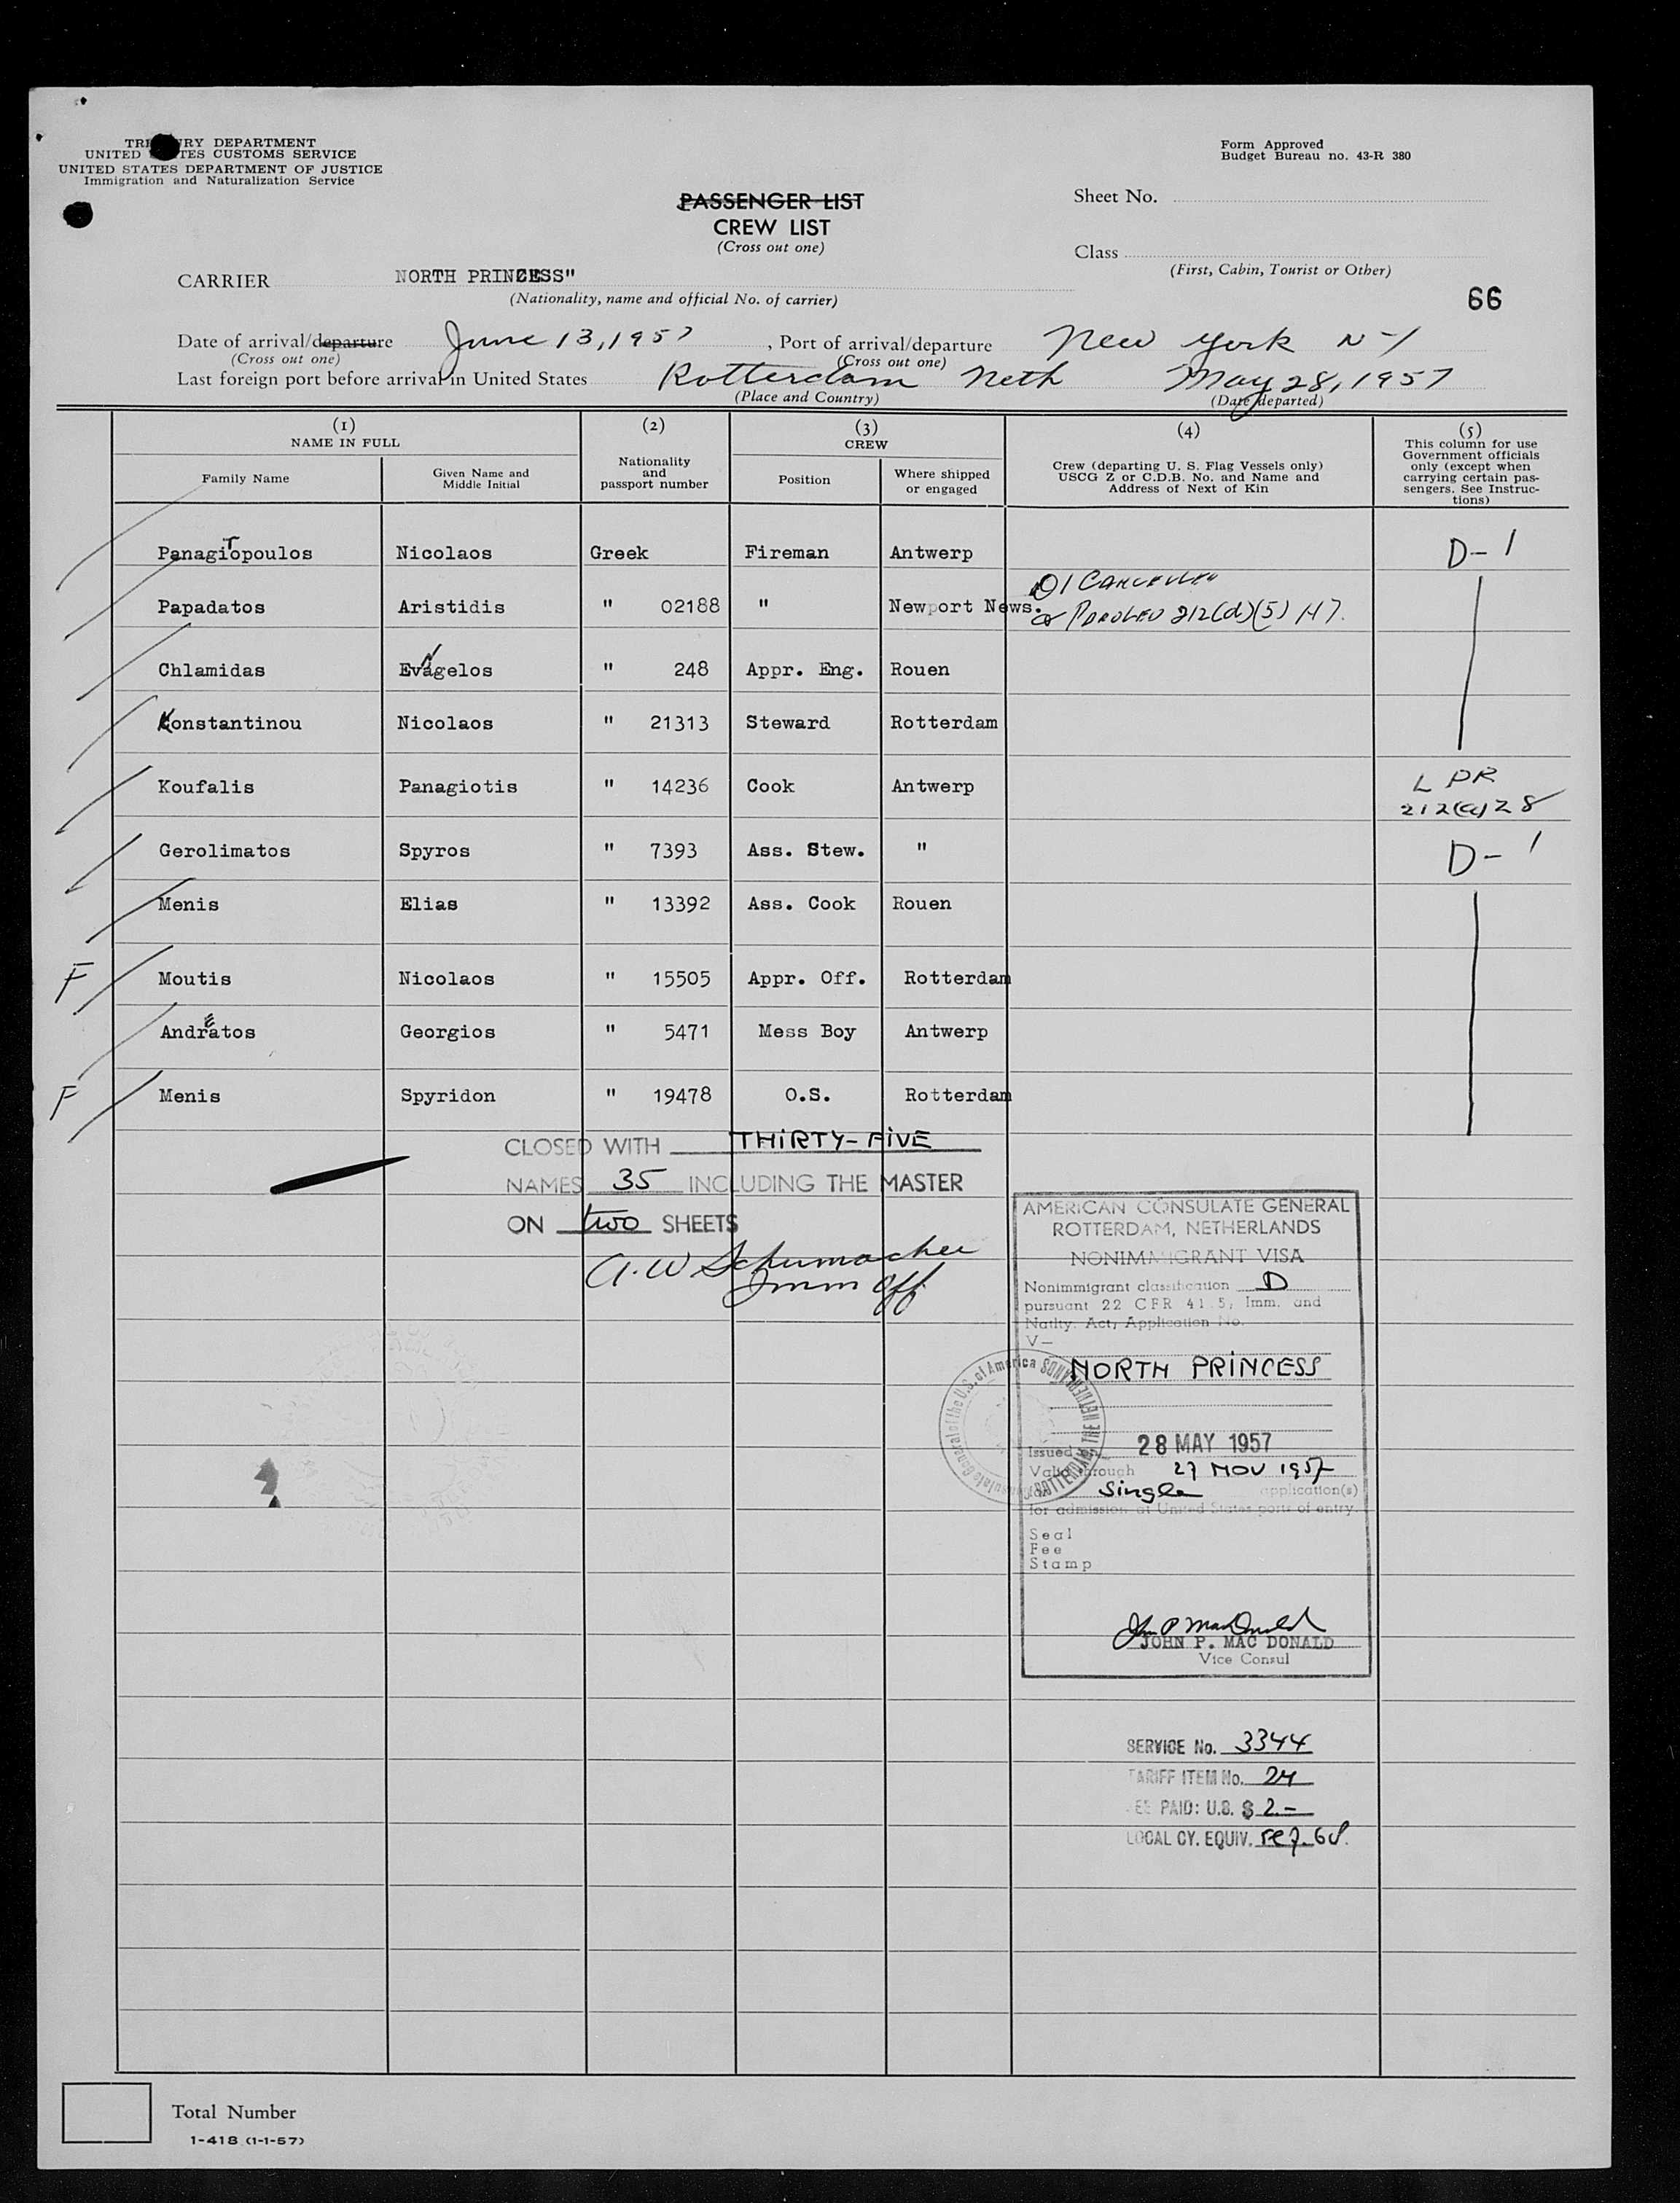 TREASURY DEPARTMENT
UNITED STATES CUSTOMS SERVICE
UNITED STATES DEPARTMENT OF JUSTICE
Immigration and Naturalization Service
Form Approved
Budget Bureau no. 43-R 380
PASSENGER LIST
CREW LIST
(Cross out one)
Sheet No.
Class
(First, Cabin, Tourist or Other)
CARRIER NORTH PRINCESS"
(Nationality, name and official No. of carrier)
66
Date of arrival/departure June 13, 1957, Port of arrival/departure New York NY
(Cross out one) (Cross out one)
Last foreign port before arrival in United States Rotterdam Neth May 28, 1957
(Place and Country) (Date departed)
(1) (2) (3) (4) (5)
NAME IN FULL
Family Name
Given Name and Middle Initial
Nationality and passport number
CREW
Position
Where shipped or engaged
Crew (departing U. S. Flag Vessels only)
USCG Z or C.D.B. No. and Name and
Address of Next of Kin
This column for use
Government officials
only (except when
carrying certain pas-
sengers. See Instruc-
tions)
Panagiopoulos T Nicolaos Greek Fireman Antwerp D-1
D1 Cancelled
Papadatos Aristidis " 02188 " Newport News. Paroled 212(d)(5)
Chlamidas Evagelos N " 248 Appr. Eng. Rouen
Konstantinou Nicolaos " 21313 Steward Rotterdam
Koufalis Panagiotis " 14236 Cook Antwerp L PR
212(a)28
Gerolimatos Spyros " 7393 Ass. Stew. " D-1
Menis Elias " 13392 Ass. Cook Rouen
F Moutis Nicolaos " 15505 Appr. Off. Rotterdam
Andratos E Georgios " 5471 Mess Boy Antwerp
F Menis Spyridon " 19478 O.S. Rotterdam
CLOSED WITH THIRTY-FIVE
NAMES 35 INCLUDING THE MASTER
ON two SHEETS
A.W Schumacher
Imm Off
AMERICAN CONSULATE GENERAL
ROTTERDAM, NETHERLANDS
NONIMMIGRANT VISA
Nonimmigrant classification D
pursuant 22 CFR 41.5, Imm. and
Natlty. Act, Application No.
V-
NORTH PRINCESS
Issued on 28 MAY 1957
Valid through 27 NOV 1957
Single application(s)
for admission at United States ports of entry.
Seal
Fee
Stamp
John P MacDonald
JOHN P. MAC DONALD
Vice Consul
SERVICE No. 3344
TARIFF ITEM No. 24
FEE PAID: U.S. $ 2.-
LOCAL CY. EQUIV.
Total Number
1-418 (1-1-57)